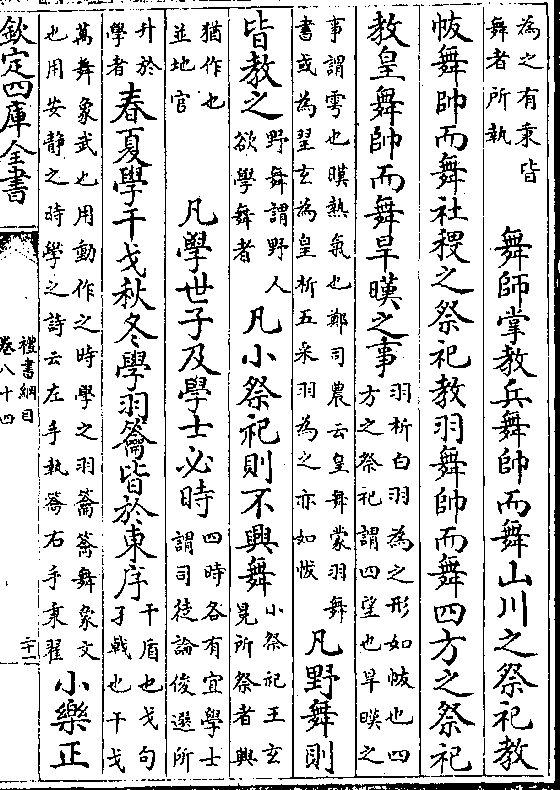 為之有秉皆
舞者所執
舞師掌教兵舞帥而舞山川之祭祀教
帗舞帥而舞社稷之祭祀教羽舞帥而舞四方之祭祀
教皇舞帥而舞旱暵之事
羽析白羽為之形如帗也四
方之祭祀謂四望也旱暵之
事謂雩也暵熱氣也鄭司農云皇舞蒙羽舞
書或為翌玄為皇析五采羽為之亦如帗
凡野舞則
皆教之
野舞謂野人
欲學舞者
凡小祭祀則不興舞
小祭祀王玄
冕所祭者興
猶作也
並地官
凡學世子及學士必時
四時各有宜學士
謂司徒論俊選所
升於
學者
春夏學干戈秋冬學羽籥皆於東序
干盾也戈句
孑戟也干戈
萬舞象武也用動作之時學之羽籥籥舞象文
也用安靜之時學之詩云左手執籥右手秉翟
小樂正
欽定四庫全書
禮書綱目
卷八十四